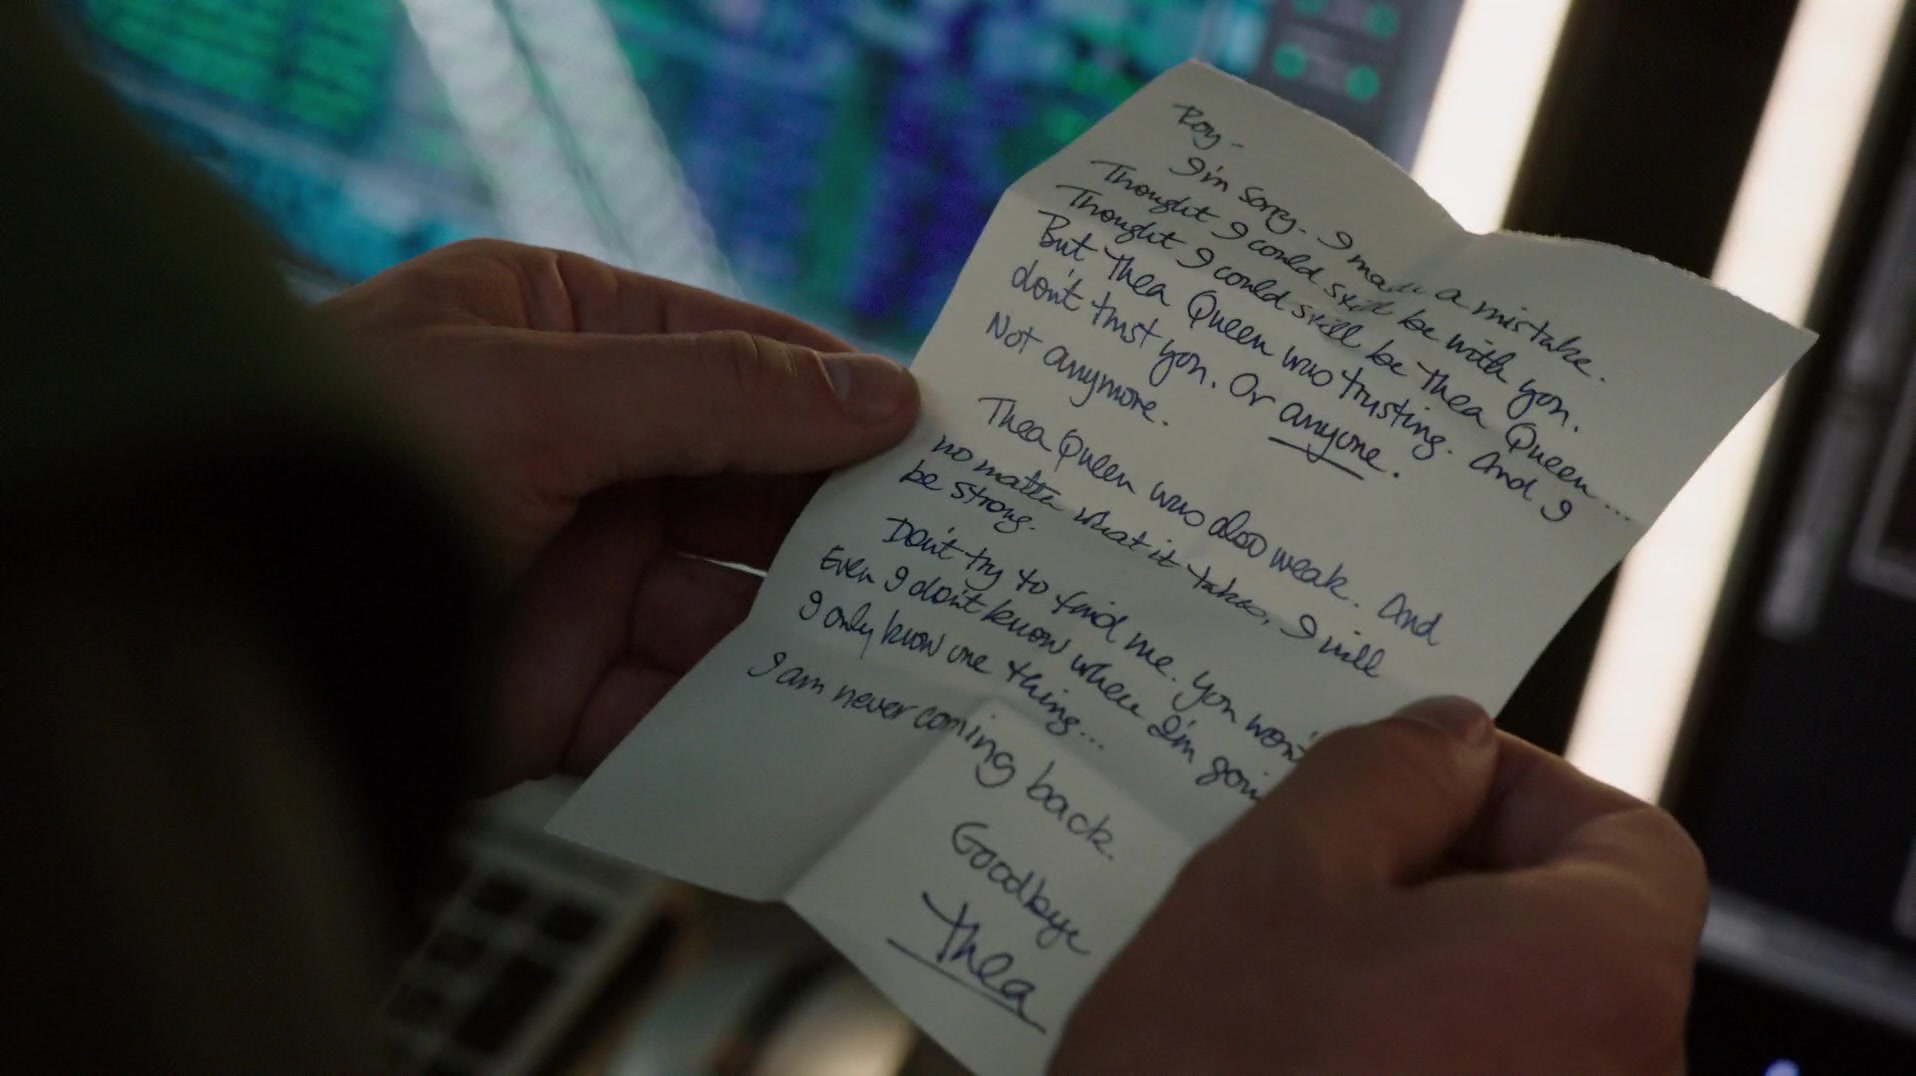 Roy-
I'm sorry. I made a mistake.
Thought I could still be with you.
Thought I could still be Thea Queen...
But Thea Queen was trusting. And I
don't trust you. Or anyone.
Not anymore.
Thea Queen was also weak. And
no matter what it takes, I will
be strong.
Don't try to find me. You won't
Even I don't know where I'm goin
I only know one thing...
I am never coming back.
Goodbye
Thea